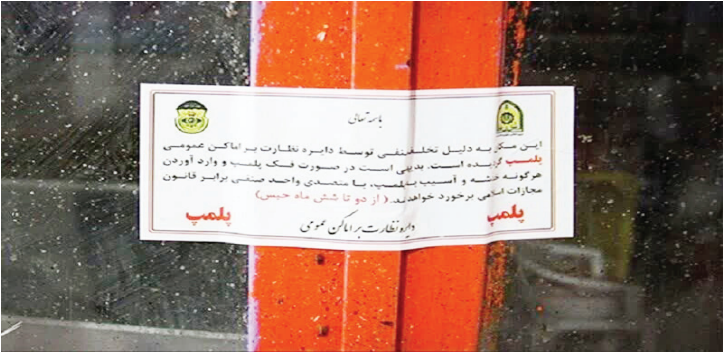 باسمه تعالی
این مکان به دلیل تخلف صنفی توسط دایره نظارت بر اماکن عمومی
پلمپ گردیده است. بدیهی است در صورت فک پلمپ و وارد آوردن
هرگونه خدشه و آسیب به پلمپ، با متصدی واحد صنفی برابر قانون
مجازات اسلامی برخورد خواهد شد. (از دو تا شش ماه حبس)
پلمپ پلمپ
دایره نظارت بر اماکن عمومی